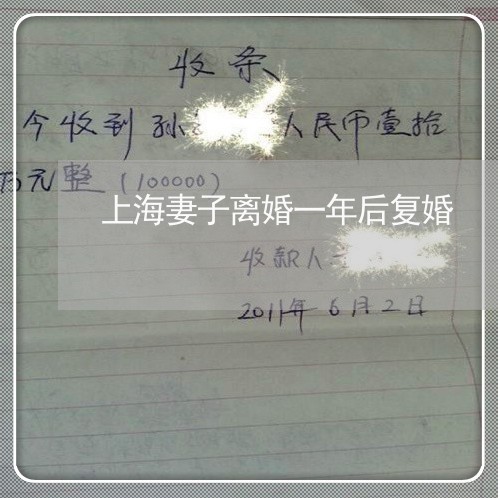 收条
今收到孙 人民币壹拾
万元整（100000）
上海妻子离婚一年后复婚
收款人
2011年6月2日